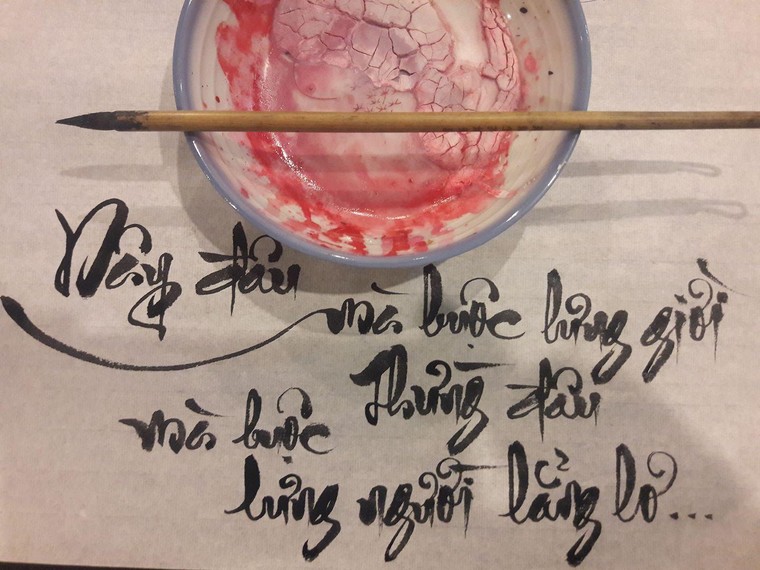 Dây đâu
mà buộc lưng giời
Thừng đâu
mà buộc
lưng người lẳng lơ...